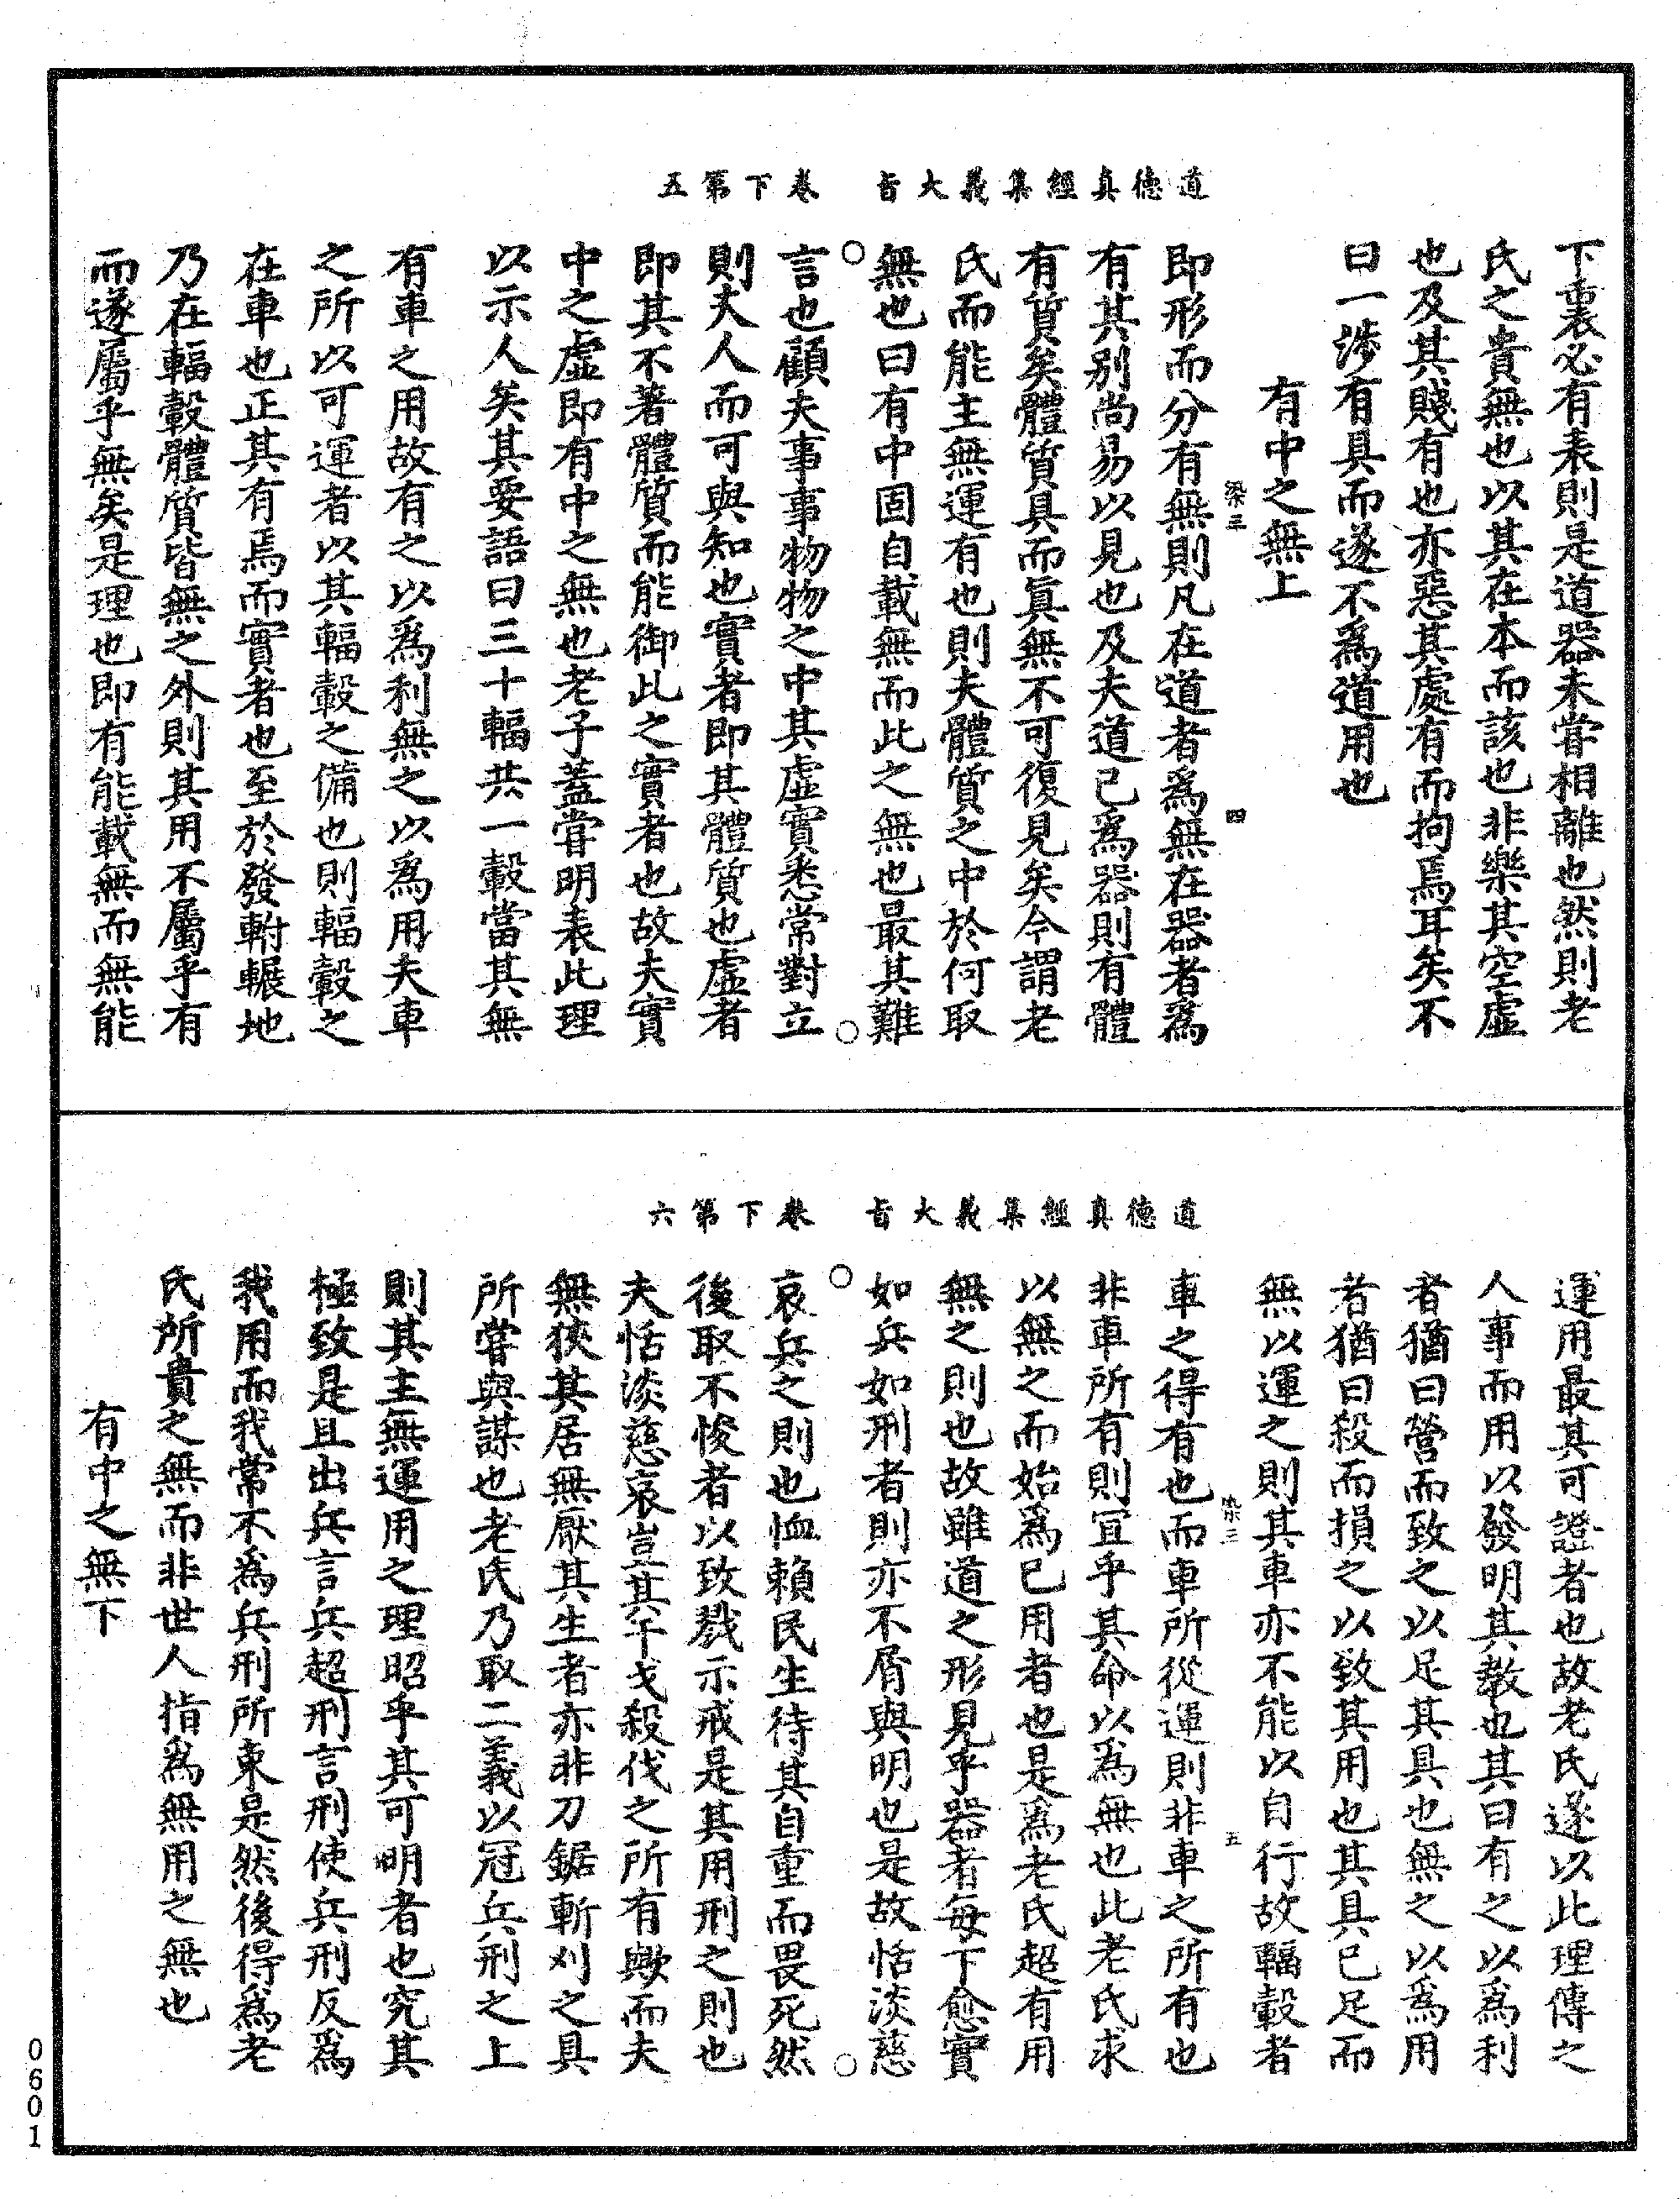 道德真經集義大旨　卷下第五
下裏必有表則是道器未甞相離也然則老
氏之貴無也以其在本而該也非樂其空虛
也及其賤有也亦惡其處有而拘焉耳矣不
曰一涉有具而遂不爲道用也
有中之無上
染三　四
即形而分有無則凡在道者爲無在器者爲
有其別尚易以見也及夫道已爲器則有體
有質矣體質具而眞無不可復見矣今謂老
氏而能主無運有也則夫體質之中於何取
無也曰有中固自載無而此之無也最其難
言也顧夫事事物物之中其虛實悉常對立
則夫人而可與知也實者即其體質也虛者
即其不著體質而能御此之實者也故夫實
中之虛即有中之無也老子蓋甞明表此理
以示人矣其要語曰三十輻共一轂當其無
有車之用故有之以爲利無之以爲用夫車
之所以可運者以其輻轂之備也則輻轂之
在車也正其有焉而實者也至於發軵輾地
乃在輻轂體質皆無之外則其用不屬乎有
而遂屬乎無矣是理也即有能載無而無能
道德真經集義大旨　卷下第六
運用最其可證者也故老氏遂以此理傳之
人事而用以發明其教也其曰有之以爲利
者猶曰營而致之以足其具也無之以爲用
者猶曰殺而損之以致其用也其具已足而
無以運之則其車亦不能以自行故輻轂者
染三　五
車之得有也而車所從運則非車之所有也
非車所有則冝乎其命以爲無也此老氏求
以無之而始爲已用者也是爲老氏超有用
無之則也故雖道之形見乎器者每下愈實
如兵如刑者則亦不屑與明也是故恬淡慈
哀兵之則也恤賴民生待其自重而畏死然
後取不悛者以致戮示戒是其用刑之則也
夫恬淡慈哀豈其干戈殺伐之所有歟而夫
無狹其居無厭其生者亦非刀鋸斬刈之具
所甞與謀也老氏乃取二義以冠兵刑之上
則其主無運用之理昭乎其可明者也究其
極致是且出兵言兵超刑言刑使兵刑反爲
我用而我常不爲兵刑所束是然後得爲老
氏所貴之無而非世人指爲無用之無也
有中之無下
0601